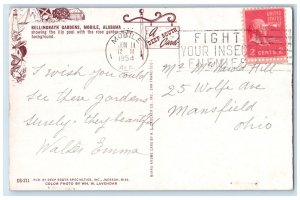 BELLINGRATH GARDENS, MOBILE, ALABAMA
showing the lily pool with the rose garden in
background.
A
DEEP SOUTH
Card
MOBILE
JUN 14
12 PM
1954
ALA.
FIGHT
YOUR INSECT
ENEMIES
UNITED STATES
POSTAGE
2 CENTS 2
I wish you could
see these gardens
Surely. They beautiful
Walter Emma
Mr & Mrs Harold Hill
25 Wolfe Ave
Mansfield
Ohio
DS-211
PUB. BY DEEP SOUTH SPECIALTIES, INC., JACKSON, MISS.
COLOR PHOTO BY WM. W. LAVENDAR